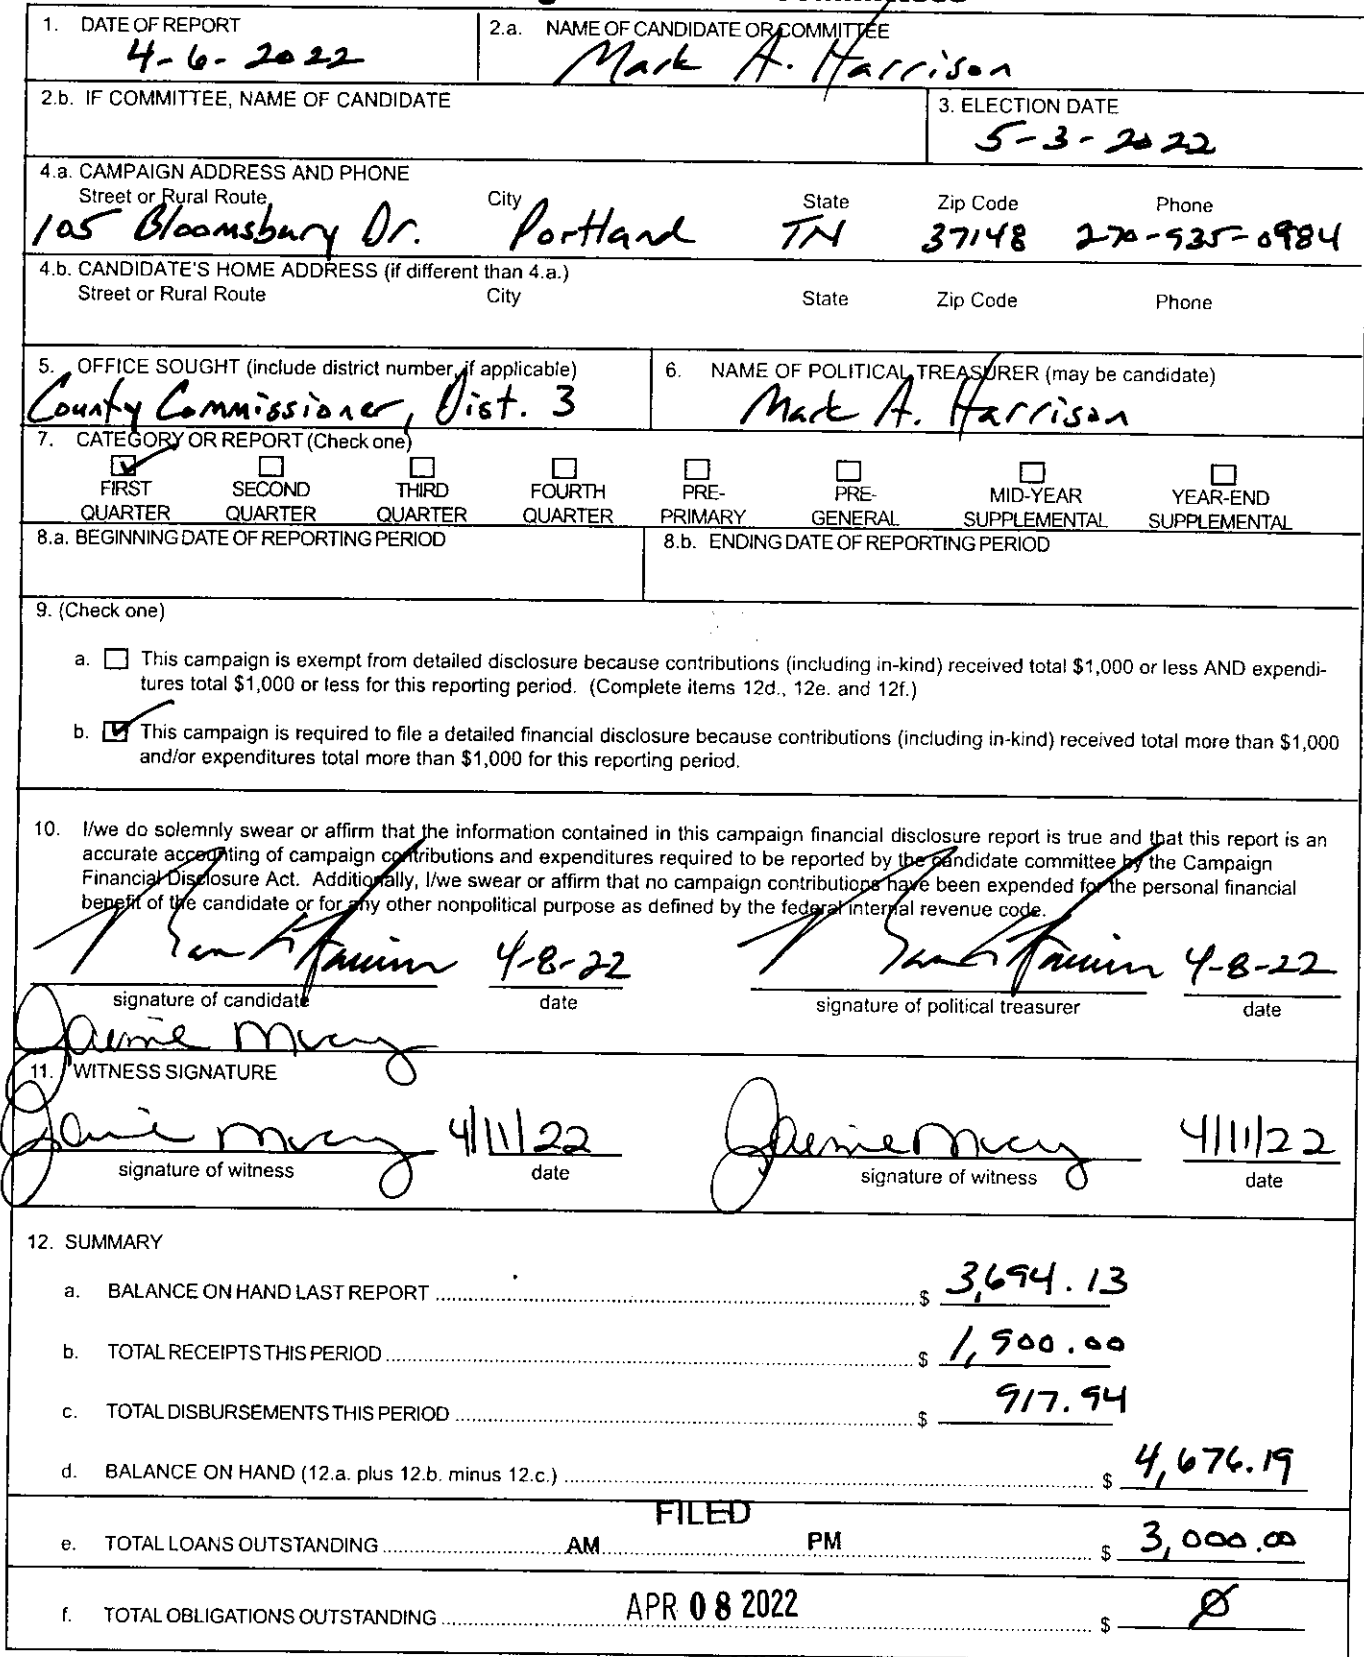 1. DATE OF REPORT
4-6-2022
2.a. NAME OF CANDIDATE OR COMMITTEE
Mark A. Harrison
2.b. IF COMMITTEE, NAME OF CANDIDATE
3. ELECTION DATE
5-3-2022
4.a. CAMPAIGN ADDRESS AND PHONE
Street or Rural Route City State Zip Code Phone
105 Bloomsbury Dr. Portland TN 37148 270-535-0984
4.b. CANDIDATE'S HOME ADDRESS (if different than 4.a.)
Street or Rural Route City State Zip Code Phone
5. OFFICE SOUGHT (include district number, if applicable)
County Commissioner, Dist. 3
6. NAME OF POLITICAL TREASURER (may be candidate)
Mark A. Harrison
7. CATEGORY OR REPORT (Check one)
FIRST QUARTER
SECOND QUARTER
THIRD QUARTER
FOURTH QUARTER
PRE-PRIMARY
PRE-GENERAL
MID-YEAR SUPPLEMENTAL
YEAR-END SUPPLEMENTAL
8.a. BEGINNING DATE OF REPORTING PERIOD
8.b. ENDING DATE OF REPORTING PERIOD
9. (Check one)
a. This campaign is exempt from detailed disclosure because contributions (including in-kind) received total $1,000 or less AND expendi-
tures total $1,000 or less for this reporting period. (Complete items 12d., 12e. and 12f.)
b. This campaign is required to file a detailed financial disclosure because contributions (including in-kind) received total more than $1,000
and/or expenditures total more than $1,000 for this reporting period.
10. I/we do solemnly swear or affirm that the information contained in this campaign financial disclosure report is true and that this report is an
accurate accounting of campaign contributions and expenditures required to be reported by the candidate committee by the Campaign
Financial Disclosure Act. Additionally, I/we swear or affirm that no campaign contributions have been expended for the personal financial
benefit of the candidate or for any other nonpolitical purpose as defined by the federal internal revenue code.
4-8-22 4-8-22
signature of candidate date signature of political treasurer date
11. WITNESS SIGNATURE
4/11/22 4/11/22
signature of witness date signature of witness date
12. SUMMARY
a. BALANCE ON HAND LAST REPORT $ 3,694.13
b. TOTAL RECEIPTS THIS PERIOD $ 1,900.00
c. TOTAL DISBURSEMENTS THIS PERIOD $ 917.94
d. BALANCE ON HAND (12.a. plus 12.b. minus 12.c.) $ 4,676.19
FILED
e. TOTAL LOANS OUTSTANDING AM PM $ 3,000.00
f. TOTAL OBLIGATIONS OUTSTANDING APR 08 2022 $ Ø